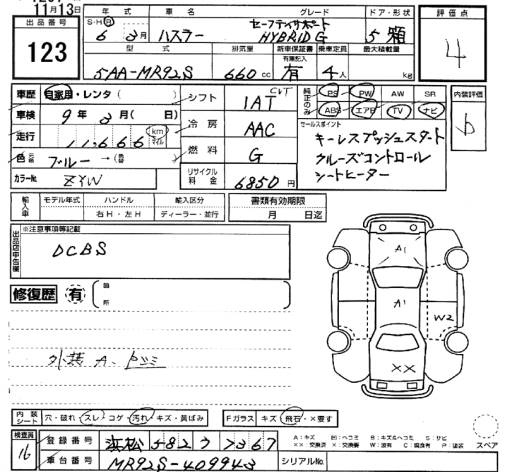 11月13日
出品番号 年式 車名 グレード ドア・形状 評価点
123
S・H・R 6年3月 ハスラー セーフティサポート HYBRID G 5 箱
4
型式 排気量 新車保証書 有無記入 乗車定員 最大積載量
5AA-MR92S 660cc 有 4人 kg
車歴 自家用・レンタ( ) シフト IAT CVT
純正のみ PS PW AW SR 内装評価
ABS エアB TV ナビ b
車検 9年3月(日) 冷房 AAC
セールスポイント
走行 11,666 km マイル
キーレスプッシュスタート
燃料 G
クルーズコントロール
色 元色 ブルー→(色)
シートヒーター
カラーNo. ZYW リサイクル料金 6850円
輸入車 モデル年式 ハンドル 右H・左H 輸入区分 ディーラー・並行 書類有効期限 月 日迄
出品店申告欄 ※注意事項等記載
DCBS
修復歴 有 箇所
A1
A1
W2
××
外装A、凹ミ
内装シート 穴・破れ スレ コゲ・汚れ キズ・黄ばみ Fガラス キズ・飛石・×要す
検査員 16
登録番号 浜松 582 つ 7367
A:キズ B:凹ヘコミ
スペア
車台番号 MR92S-409943 シリアルNo.